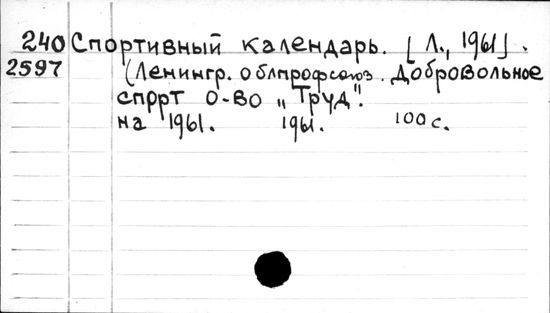 240 Спортивный календарь. [Л., 1961].
2597 (Ленингр. облпрофсоюз. Добровольное
спорт о-во „Труд".
на 1961. 1961. 100 с.